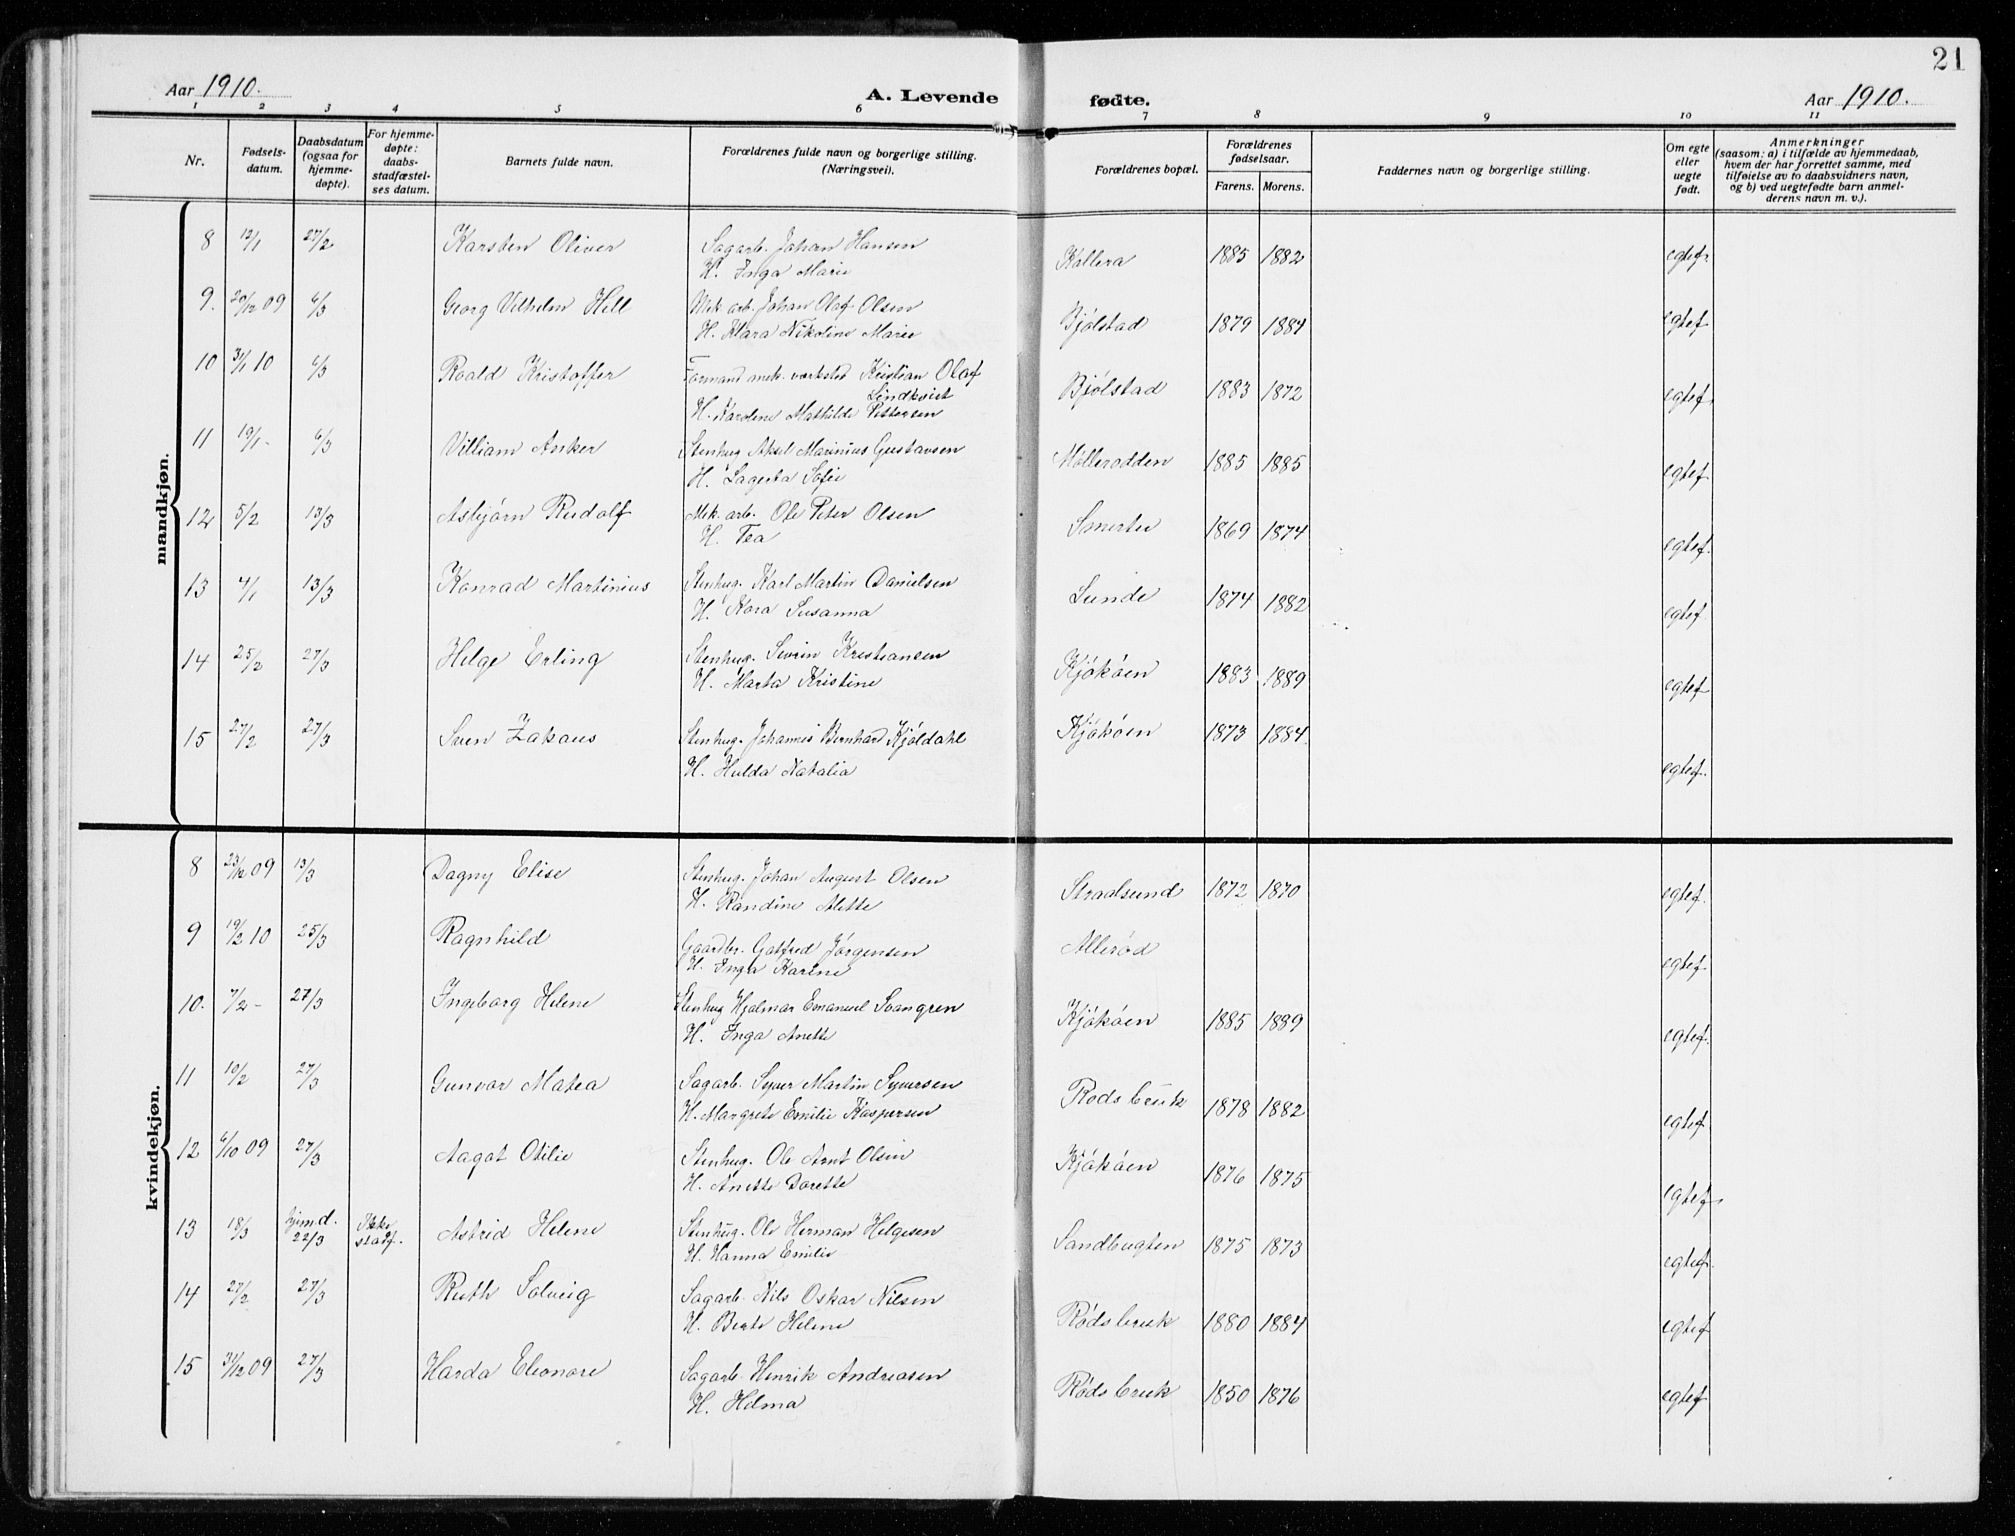 21
Aar 1910. A. Levende fødte. Aar 1910.
1 2 3 4 5 6 7 8 9 10 11
Nr. Fødselsdatum. Daabsdatum (ogsaa for hjemmedøpte). For hjemmedøpte: daabsstadfæstelses datum. Barnets fulde navn. Forældrenes fulde navn og borgerlige stilling. (Næringsvei). Forældrenes bopæl. Forældrenes fødselsaar. Farens. Morens. Faddernes navn og borgerlige stilling. Om egte eller uegte født. Anmerkninger (saasom: a) i tilfælde av hjemmedaab, hvem der har forrettet samme, med tilføielse av to daabsvidners navn, og b) ved uegtefødte barn anmelderens navn m. v.).
mandkjøn.
8 12/1 27/2 Karsten Oliver Sagarb. Johan Hansen Kallera 1885 1882 egtef.
H. Inga Marie
9. 20/12 09 6/3 Georg Vilhelm Hill Mek. arb. Johan Olaf Olsen Bjølstad 1879 1884 egtef
H. Klara Nikoline Marie
10 31/1 10 6/3 Roald Kristoffer Formand mek. værksted Kristian Olaf Bjølstad 1883 1872 egtef.
Lindkvist
H. Karoline Mathilde Pettersen
11 19/1 - 6/3 Villiam Anker Stenhug Aksel Marinius Gustavsen Mølleradden 1885 1885 egtef
H. Lagerta Sofie
12 5/2 13/3 Asbjørn Rudolf Mek. arb. Ole Peter Olsen Smertu 1869 1874 egtef.
H. Tea
13 4/1 13/3 Konrad Martinius Stenhug. Karl Martin Danielsen Lunde 1874 1882 egtef
H. Kora Susanna
14 25/2 27/3 Helge Erling Stenhug. Severin Kristiansen Kjøkøen 1883 1889 egtef
H. Marta Kristine
15 27/2 27/3 Sven Zakaus Stenhug. Johannes Bernhard Kjøldahl Kjøkøen 1873 1884. egtef.
H. Hulda Natalia
kvindekjøn.
8 23/12 09 13/3 Dagny Elise Stenhug. Johan August Olsen Straalsund 1872 1870 egtef.
H. Randine Alette
9 19/2 10 25/3 Ragnhild Gaardbr. Gotfred Jørgensen Allerød egtef
H. Inga Karine
10. 7/2 - 27/3 Ingeborg Helene Stenhug Hjalmar Emanuel Svangren Kjøkøen 1885 1889 egtef.
H. Inga Anette
11 10/2 27/3 Gunvor Matea Sagarb. Syver Martin Syversen Rødsbruk 1878 1882 egtef.
H. Margrete Emilie Kaspersen
12 6/10 09 27/3 Aagot Otilie Stenhug. Ole Arnt Olsen Kjøkøen 1876 1875 egtef.
H. Anette Dorette
13 18/3 hjem.d. 22/3 Ikke stadf. Astrid Helene Stenhug. Ole Herman Helgesen Sandbugten 1875 1873 egtef.
H. Hanna Emilie
14 27/2 27/3 Ruth Solveig Sagarb. Nils Oskar Nilsen Rødsbruk 1880 1884 egtef
H. Berte Helene
15 31/12 09 27/3 Harda Eleonore Sagarb. Henrik Andreasen Rødsbruk 1850 1876 egtef
H. Helma